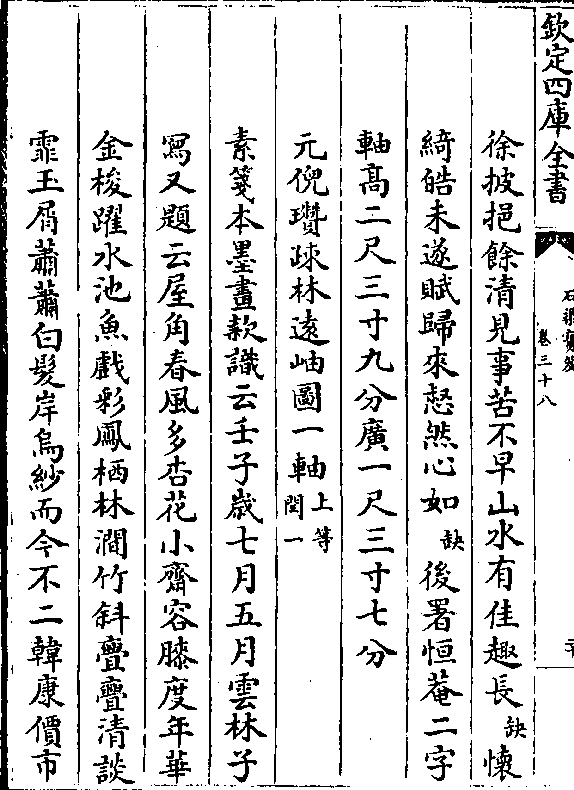 欽定四庫全書
石渠寳笈
卷三十八
徐披挹餘清見事苦不早山水有佳趣長缺懐
綺皓未遂賦歸來惄然心如缺後署恒菴二字
軸髙二尺三寸九分廣一尺三寸七分
元倪瓚疎林逺岫圖一軸上等閏一
素箋本墨畫款識云壬子歳七月五月雲林子
寫又題云屋角春風多杏花小齋容膝度年華
金梭躍水池魚戲彩鳳栖林澗竹斜亹亹清談
霏玉屑蕭蕭白髪岸烏紗而今不二韓康價市